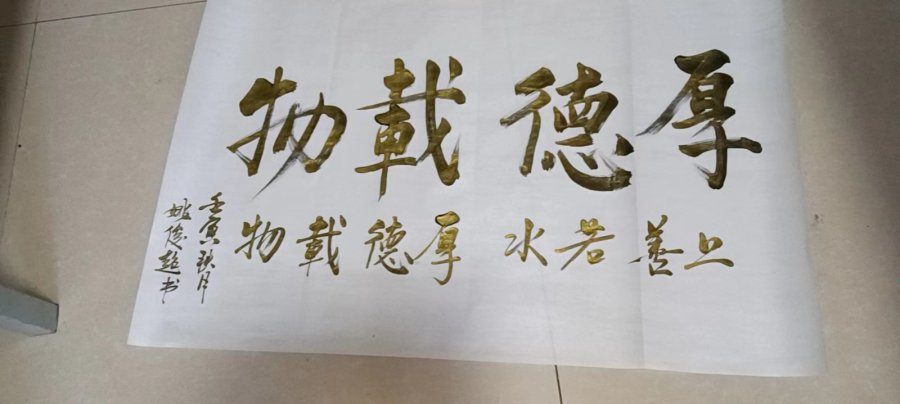 厚德載物
上善若水厚德載物
壬寅秋月
姚俊超书